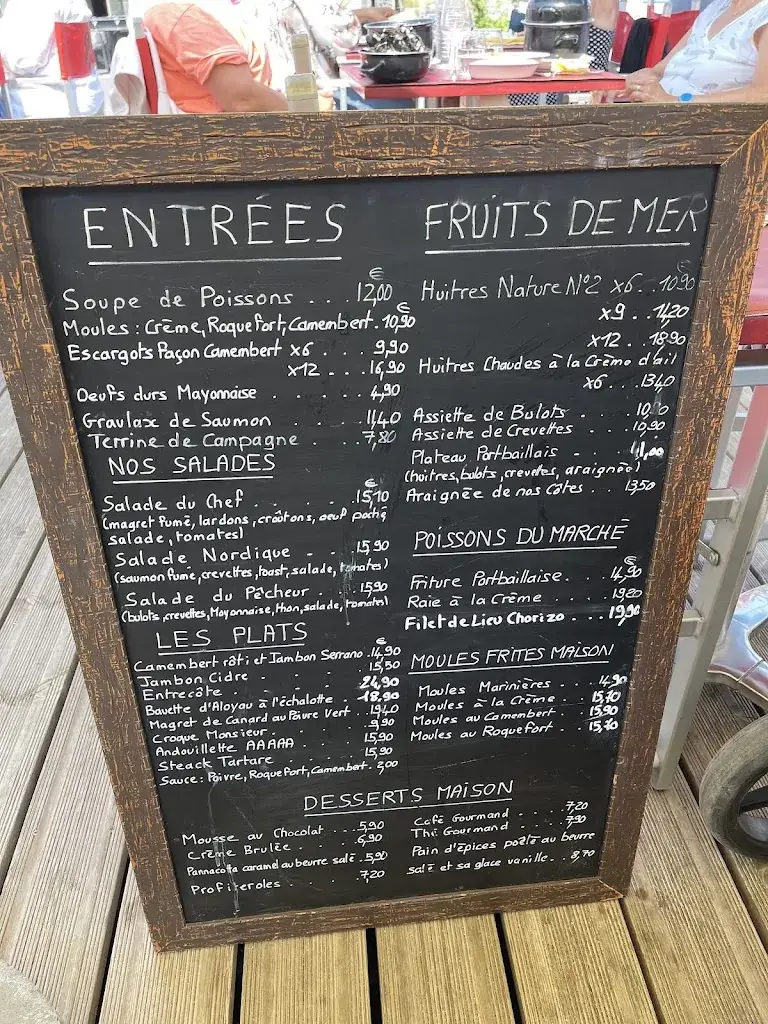 ENTRÉES
€
Soupe de Poissons . . . 12,00
€
Moules : Crème, Roquefort, Camembert . 10,90
Escargots Façon Camembert x6 . . . 9,90
x12 . . . 16,90
Oeufs durs Mayonnaise . . . . . 4,90
Gravlax de Saumon . . . . 11,40
Terrine de Campagne . . . 7,80
NOS SALADES
€
Salade du Chef . . . . . 15,10
(magret fumé, lardons, croûtons, oeuf poché
salade, tomates)
Salade Nordique - - . 15,90
(saumon fumé, crevettes, toast, salade, tomates)
Salade du Pêcheur . . . 15,90
(bulots, crevettes, Mayonnaise, thon, salade, tomates)
LES PLATS
€
Camembert rôti et Jambon Serrano . 14,90
Jambon Cidre . . . . 15,50
Entrecôte . . . . . 24,90
Bavette d'Aloyau à l'échalotte . 18,90
Magret de Canard au Poivre Vert . . 19,40
Croque Monsieur . . . . 9,90
Andouillette AAAAA . . . 15,90
Steack Tartare . . . . 15,90
Sauce : Poivre, Roquefort, Camembert . 2,00
FRUITS DE MER
€
Huitres Nature N°2 x6 . . 10,90
x9 . . 14,20
x12 . . 18,90
Huîtres Chaudes à la Crème d'ail
x6 . . 13,40
Assiette de Bulots . . .
Assiette de Crevettes . . . 10,90
Plateau Portbaillais - - . 41,00
(huitres, bulots, crevettes, araignée)
Araignée de nos Côtes . . . 13,50
POISSONS DU MARCHÉ
€
Friture Portbaillaise . . . . 14,90
Raie à la Crème . . . . 19,20
Filet de Lieu Chorizo . . . 19,90
MOULES FRITES MAISON
Moules Marinières . . . 14,90
Moules à la Crème . . . 15,70
Moules au Camembert . . . 15,90
Moules au Roquefort . . . 15,70
DESSERTS MAISON
Mousse au Chocolat . . . 5,90
Crème Brulée . . . . 6,90
Pannacotta caramel au beurre salé . 5,90
Profiteroles . . . . 7,20
Café Gourmand . . . . 7,20
Thé Gourmand . . . . 7,90
Pain d'épices poêlé au beurre
salé et sa glace vanille . . . 8,70